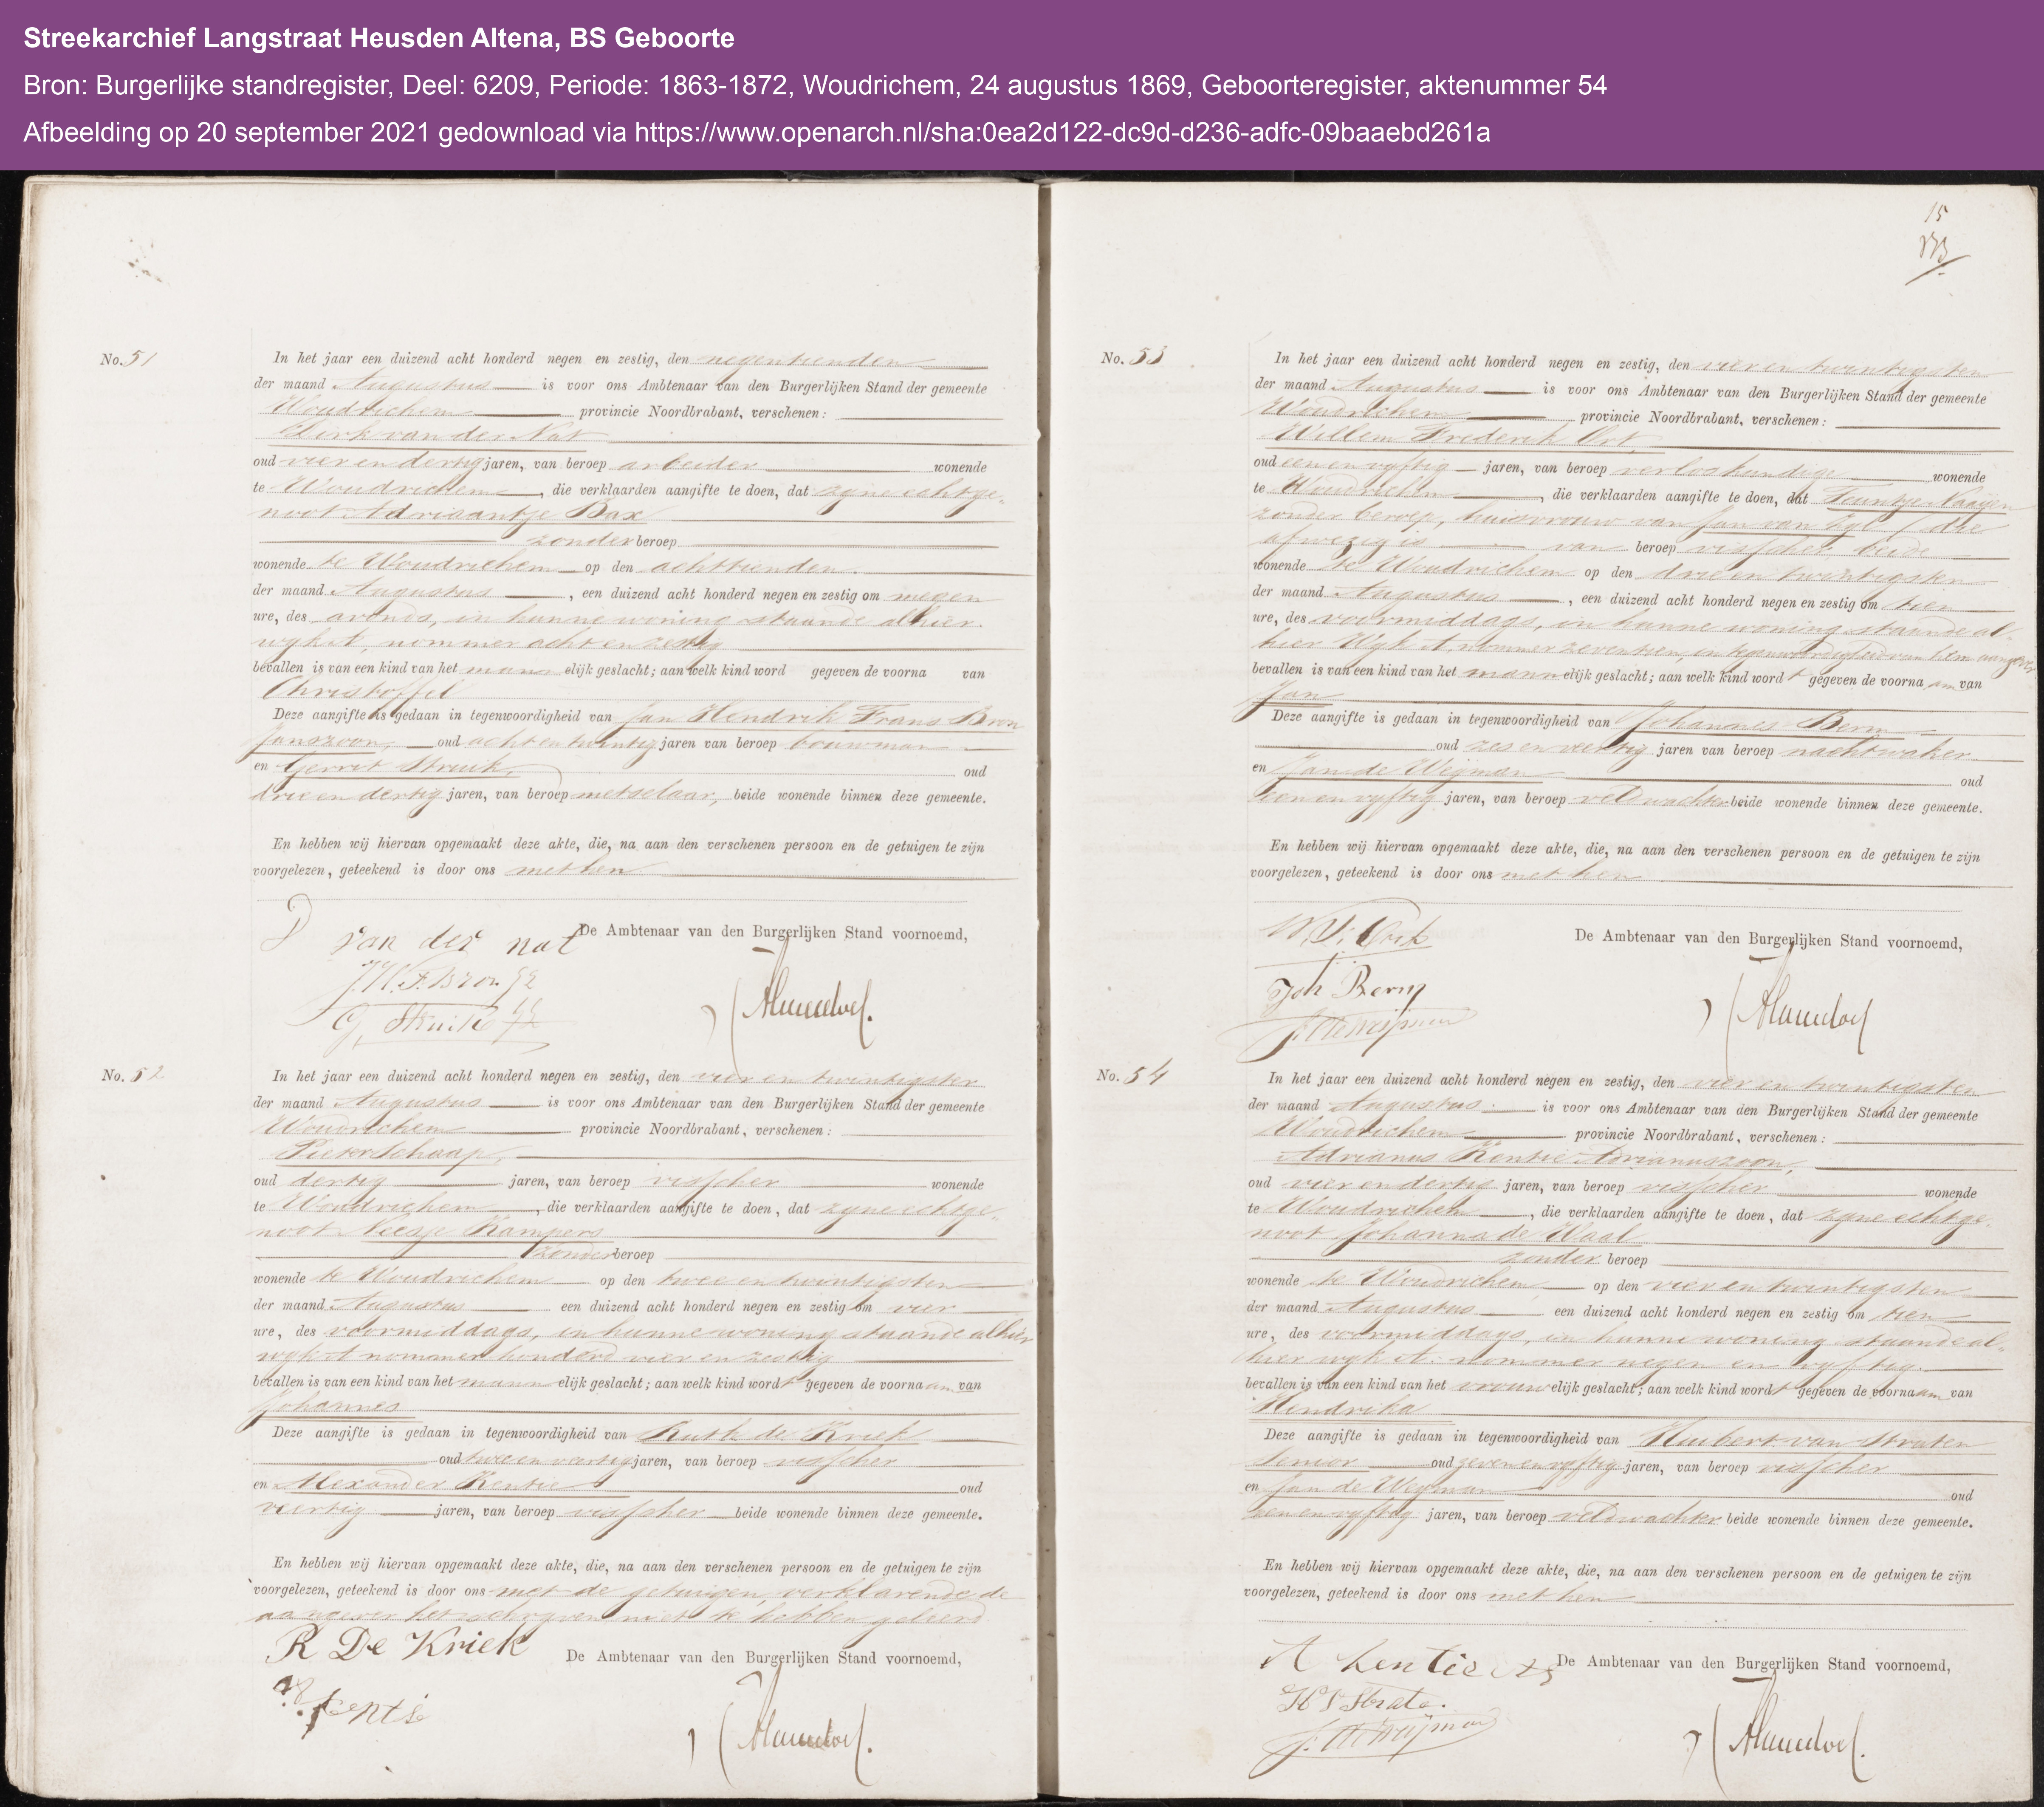 Streekarchief Langstraat Heusden Altena, BS Geboorte
Bron: Burgerlijke standregister, Deel: 6209, Periode: 1863-1872, Woudrichem, 24 augustus 1869, Geboorteregister, aktenummer 54
Afbeelding op 20 september 2021 gedownload via https://www.openarch.nl/sha:0ea2d122-dc9d-d236-adfc-09baaebd261a
No. 51
In het jaar een duizend acht honderd negen en zestig, den negentienden
der maand Augustus is voor ons Ambtenaar van den Burgerlijken Stand der gemeente
Woudrichem provincie Noordbrabant, verschenen:
Dirk van der Nat
oud vier en dertig jaren, van beroep arbeider wonende
te Woudrichem, die verklaarden aangifte te doen, dat zyne echtge-
noot Adriaantje Bax
zonder beroep
wonende te Woudrichem op den achttienden
der maand Augustus, een duizend acht honderd negen en zestig om negen
ure, des avonds, in hunne woning staande alhier
wyk A, nommer acht en zestig
bevallen is van een kind van het mann elijk geslacht; aan welk kind word gegeven de voorna van
Christoffel
Deze aangifte is gedaan in tegenwoordigheid van Jan Hendrik Frans Bron
Janszoon, oud acht en twintig jaren van beroep bouwman
en Gerrit Struik, oud
drie en dertig jaren, van beroep metselaar, beide wonende binnen deze gemeente.
En hebben wij hiervan opgemaakt deze akte, die, na aan den verschenen persoon en de getuigen te zijn
voorgelezen, geteekend is door ons met hen
De Ambtenaar van den Burgerlijken Stand voornoemd,
D van der nat
J.H.F. Bron Jz
G. Struik
No. 52
In het jaar een duizend acht honderd negen en zestig, den vier en twintigsten
der maand Augustus is voor ons Ambtenaar van den Burgerlijken Stand der gemeente
Woudrichem provincie Noordbrabant, verschenen:
Pieter Schaap,
oud dertig jaren, van beroep visscher wonende
te Woudrichem, die verklaarden aangifte te doen, dat zyne echtge-
noot Niesje Kampers
zonder beroep
wonende te Woudrichem op den twee en twintigsten
der maand Augustus een duizend acht honderd negen en zestig om vier
ure, des voormiddags, in hunne woning staande alhier
wyk A nommer honderd vier en zestig
bevallen is van een kind van het mann elijk geslacht; aan welk kind wordt gegeven de voornaam van
Johannes
Deze aangifte is gedaan in tegenwoordigheid van Ruth de Kriek
oud twee en veertig jaren, van beroep visscher
en Alexander Kentie oud
veertig jaren, van beroep visscher beide wonende binnen deze gemeente.
En hebben wij hiervan opgemaakt deze akte, die, na aan den verschenen persoon en de getuigen te zijn
voorgelezen, geteekend is door ons met de getuigen, verklarende de
aangever het schryven niet te hebben geleerd
R De Kriek
De Ambtenaar van den Burgerlijken Stand voornoemd,
Kentie
15
No. 53
In het jaar een duizend acht honderd negen en zestig, den vier en twintigsten
der maand Augustus is voor ons Ambtenaar van den Burgerlijken Stand der gemeente
Woudrichem provincie Noordbrabant, verschenen:
Willem Frederik Ort,
oud een en vyftig jaren, van beroep verloskundige wonende
te Woudrichem, die verklaarden aangifte te doen, dat Teuntje
zonder beroep, huisvrouw van Jan van (die
afwezig is van beroep visscher, beide
wonende te Woudrichem op den drie en twintigsten
der maand Augustus, een duizend acht honderd negen en zestig om tien
ure, des voormiddags, in hunne woning staande al-
hier Wyk A, nommer zeventien, in tegenwoordigheid van hem aangever
bevallen is van een kind van het mann elijk geslacht; aan welk kind wordt gegeven de voornaam van
Jan
Deze aangifte is gedaan in tegenwoordigheid van Johannes Bern
oud zes en veertig jaren van beroep nachtwaker
en Jan de Weyman oud
een en vyftig jaren, van beroep veldwachter beide wonende binnen deze gemeente.
En hebben wij hiervan opgemaakt deze akte, die, na aan den verschenen persoon en de getuigen te zijn
voorgelezen, geteekend is door ons met hen
De Ambtenaar van den Burgerlijken Stand voornoemd,
Joh Bern
No. 54
In het jaar een duizend acht honderd negen en zestig, den vier en twintigsten
der maand Augustus is voor ons Ambtenaar van den Burgerlijken Stand der gemeente
Woudrichem provincie Noordbrabant, verschenen:
Adrianus Kentie Adrianuszoon,
oud vier en dertig jaren, van beroep visscher wonende
te Woudrichem, die verklaarden aangifte te doen, dat zyne echtge-
noot Johanna de Waal
zonder beroep
wonende te Woudrichem, op den vier en twintigsten
der maand Augustus een duizend acht honderd negen en zestig om tien
ure, des voormiddags, in hunne woning staande al-
hier wyk A. nommer negen en vyftig
bevallen is van een kind van het vrouw elijk geslacht; aan welk kind wordt gegeven de voornaam van
Hendrika
Deze aangifte is gedaan in tegenwoordigheid van Huibert van Straten
Senior oud zeven en vyftig jaren, van beroep visscher
en Jan de Weyman oud
een en vyftig jaren, van beroep veldwachter beide wonende binnen deze gemeente.
En hebben wij hiervan opgemaakt deze akte, die, na aan den verschenen persoon en de getuigen te zijn
voorgelezen, geteekend is door ons met hen
De Ambtenaar van den Burgerlijken Stand voornoemd,
A Kentie Az